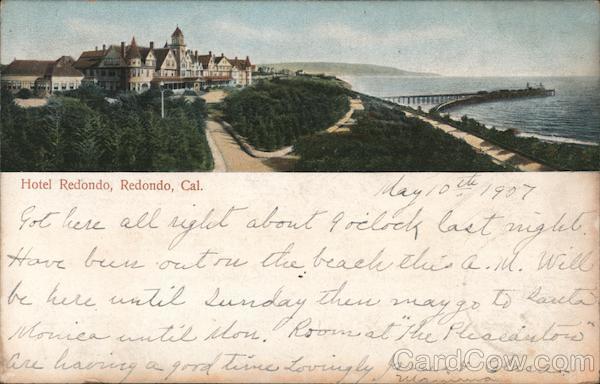 Hotel Redondo, Redondo, Cal.
May 10th 1907
Got here all right about 9 o'clock last night.
Have been out on the beach this A.M. Will
be here until Sunday then may go to Santa
Monica until Mon. Room at "The Pleasanton"
are having a good time Lovingly
CardCow.com